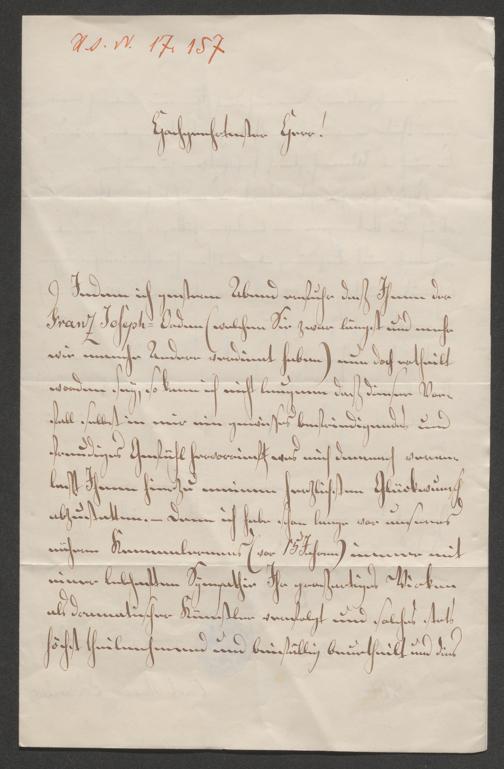 H. I. N. 17.157
Hochgeehrtester Herr!
Indem ich gestern Abend erfuhr daß Ihnen der
Franz Joseph= Orden (welchen Sie zwar längst und mehr
wie mancher Andere verdient haben) nun doch ertheilt
worden sey, so kann ich nicht leugnen daß dieser Vor-
fall selbst in mir ein gewisses befriedigendes und
freudiges Gefühl hervorrief was mich demnach veran-
laßt Ihnen hiezu meinen herzlichsten Glückwunsch
abzustatten. — Denn ich habe schon lange vor unserem
näheren Kennenlernen (vor 15 Jahren) immer mit
einer lebhaften Sympathie Ihr großartiges Wirken
als dramatischer Künstler verfolgt und solches stets
höchst theilnehmend und beifällig beurtheilt und dies